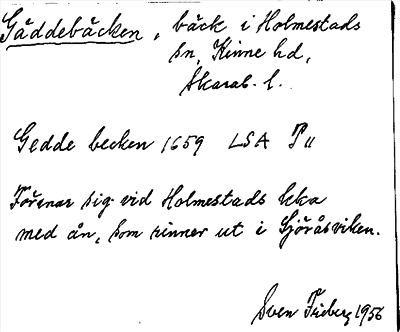 Gäddebäcken, bäck i Holmestads
sn, Kinne hd,
Skarab. l.
Gedde becken 1659 LSA P 11
Förenar sig vid Holmestads kka
med ån, som rinner ut i Sjöråsviken.
Sven Friberg 1956